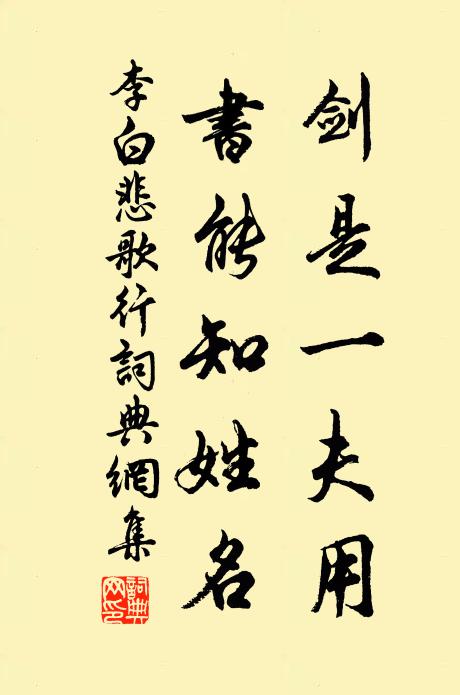 剑是一夫用
書能知姓名
李白悲歌行詞典網集
詞典网印